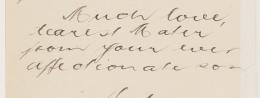 Much love,
dearest Mater
from your ever
affectionate son